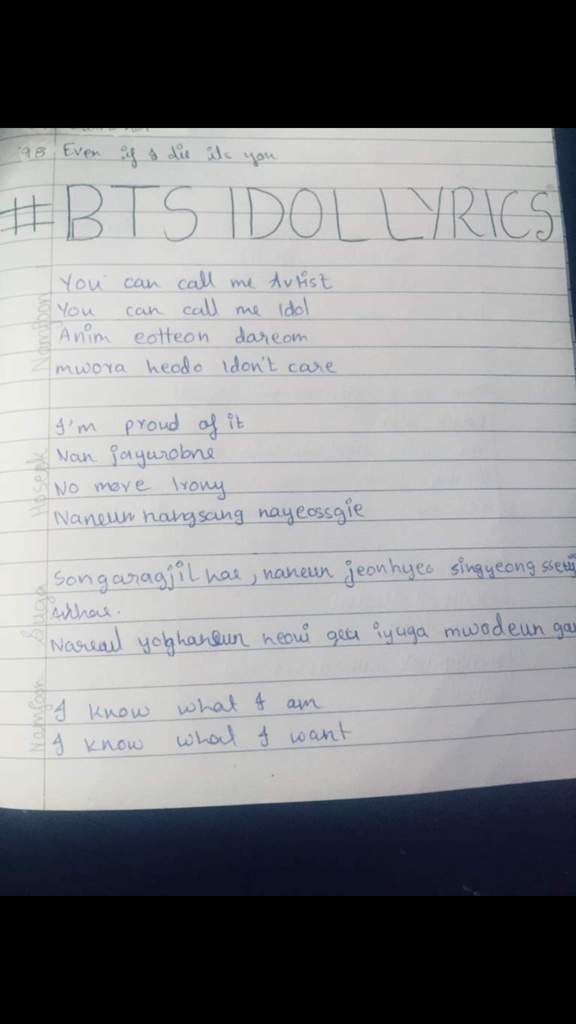 98 Even if I die its you
#BTS IDOL LYRICS
Namjoon
You can call me Artist
You can call me Idol
Anim eotteon dareom
mwora heodo I don't care
Hoseok
I'm proud of it
Nan jayurobne
No more Irony
Naneun hangsang nayeossgie
Suga
Songaragjil hae, naneun jeonhyeo singyeong
Nareul yoghaneun neoui geu iyuga mwodeun gan
Namjoon
I know what I am
I know what I want